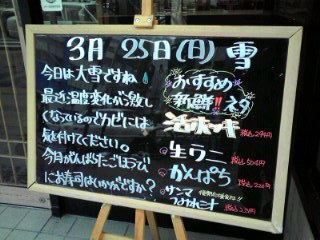 3月 25日(日) 雪
今日は大雪ですね
最近温度変化が激しく
なっているのでカビには
気を付けてください。
今月がんばったごほうび
にお寿司はいかがですか?
おすすめ
新鮮!!ネタ
活ホッキ
生ウニ
かんぱち
サンマ
つみれ汁